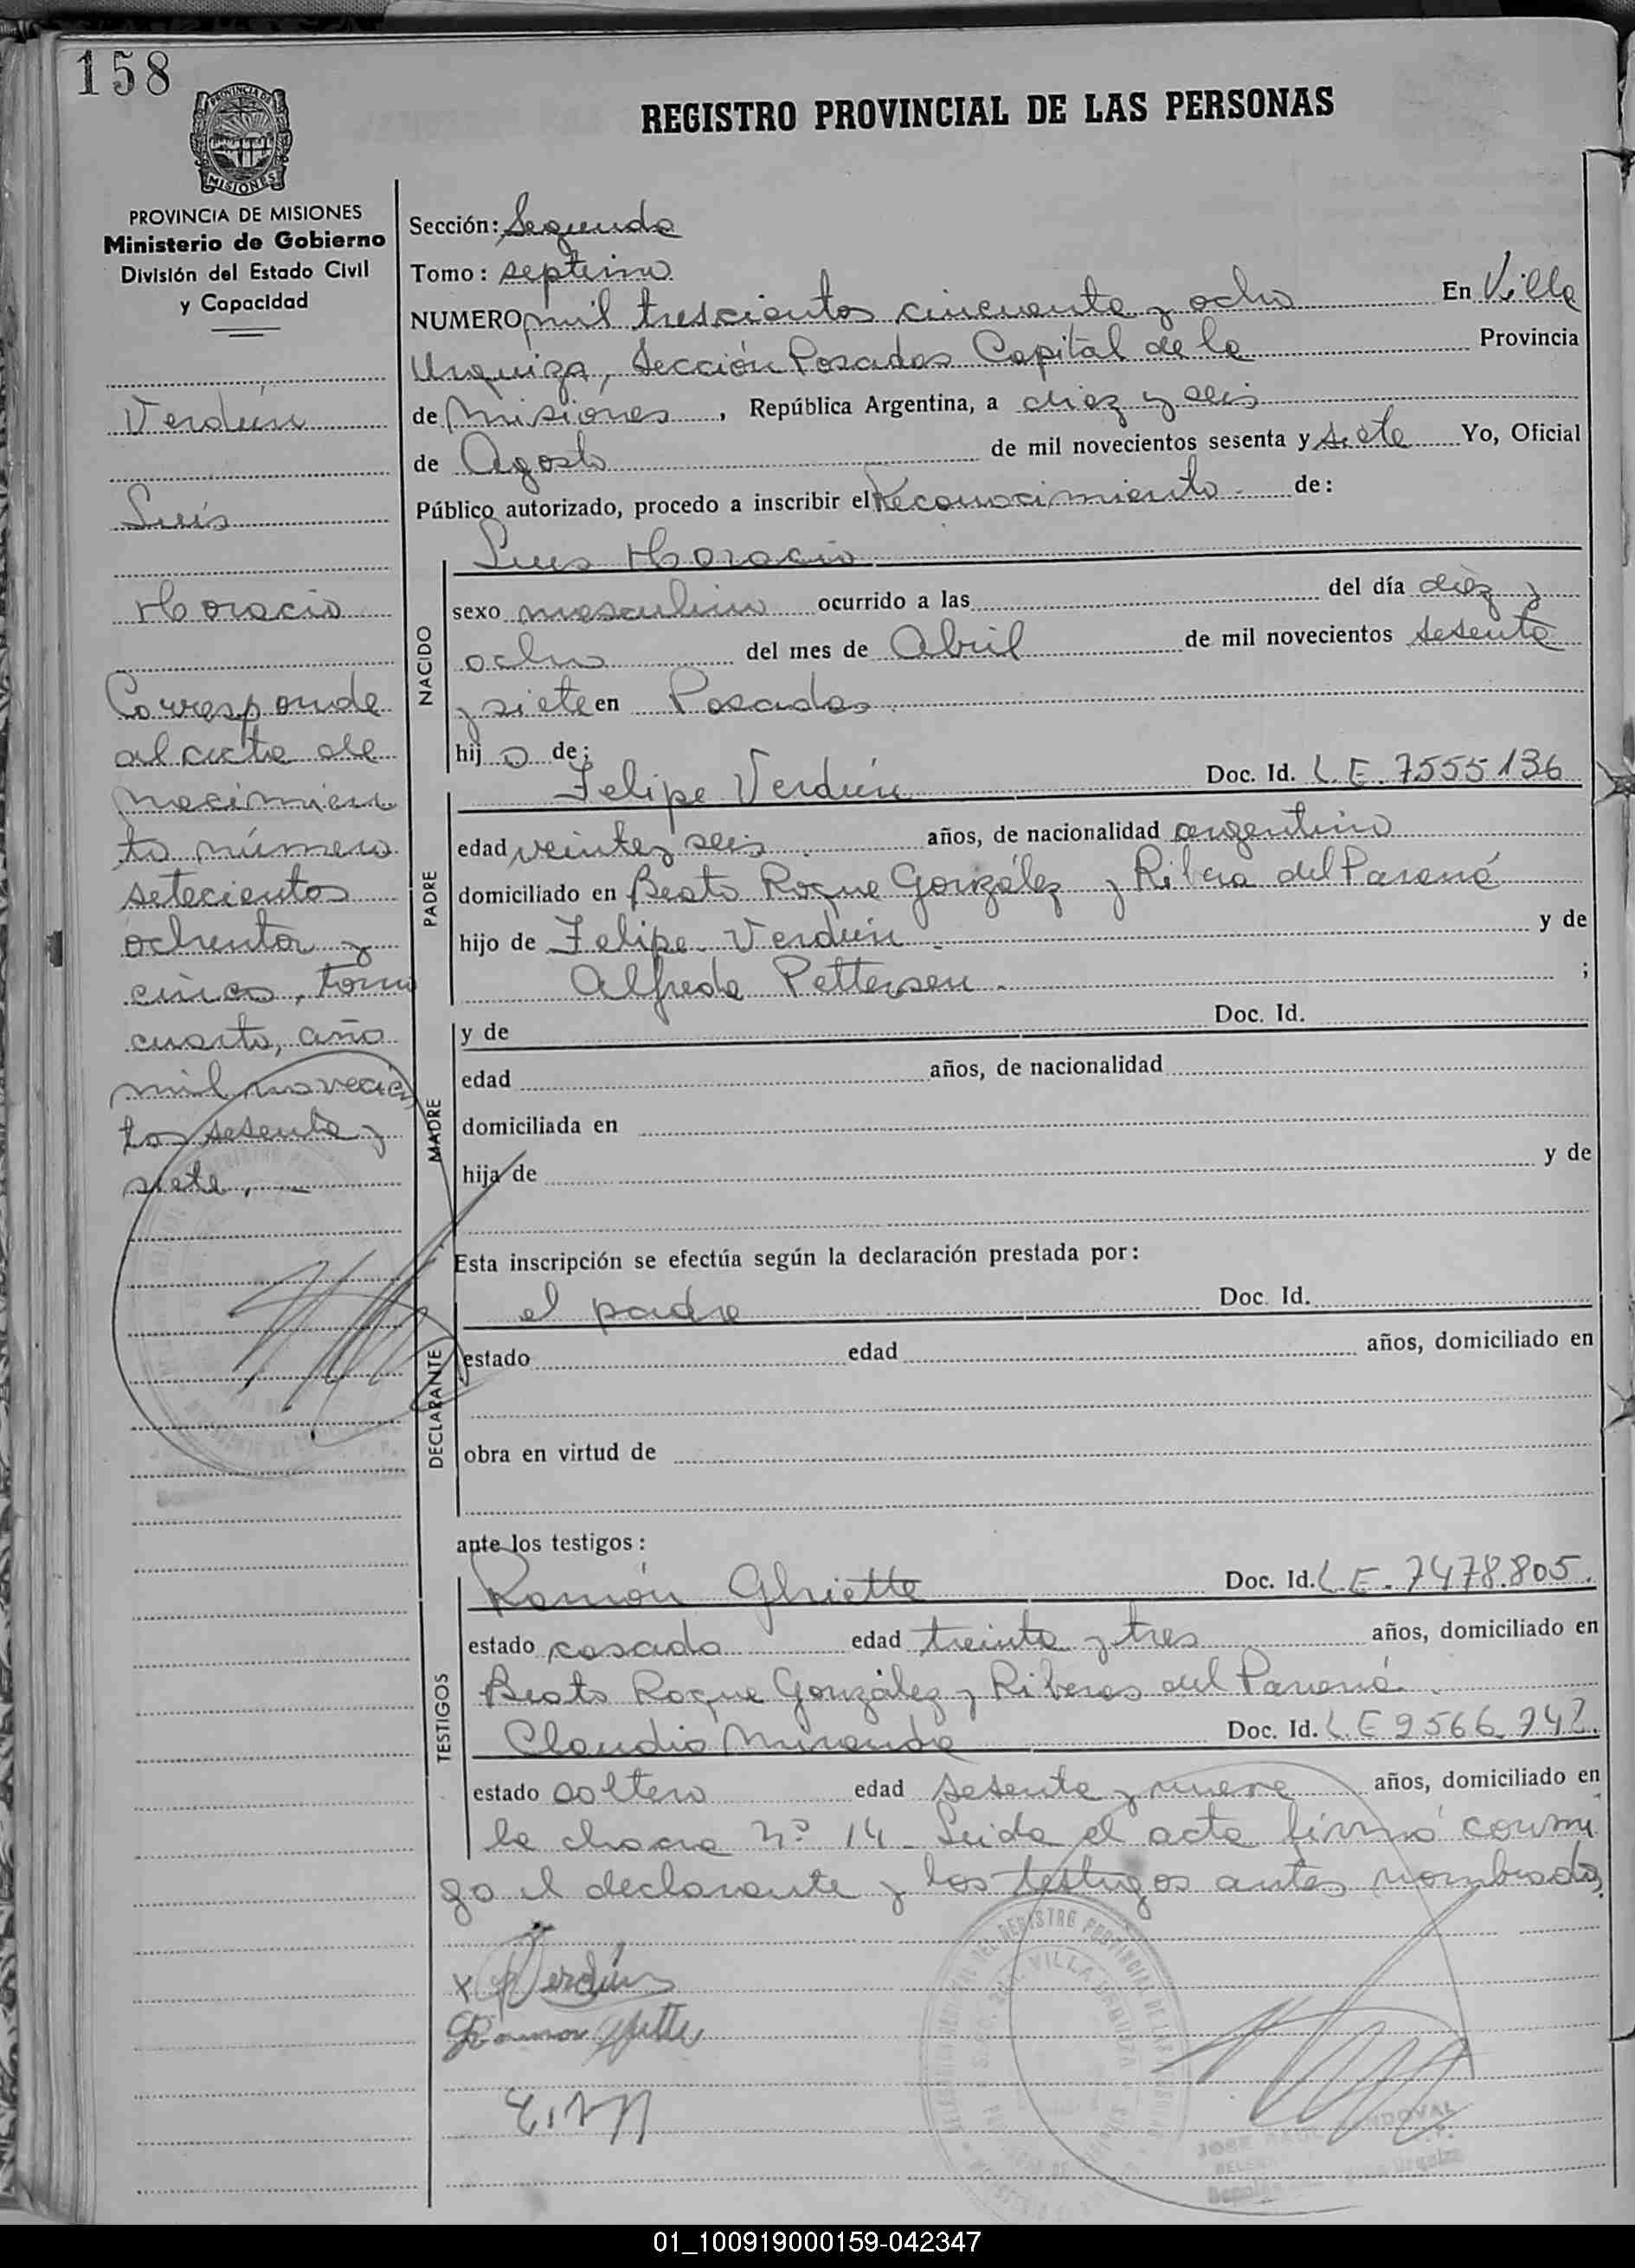 158
PROVINCIA DE
MISIONES
REGISTRO PROVINCIAL DE LAS PERSONAS
PROVINCIA DE MISIONES
Ministerio de Gobierno
División del Estado Civil
y Capacidad
Verdún
Luis
Horacio
Corresponde
al acta de
nacimien
to número
setecientos
ochenta y
cinco, tomo
cuarto, año
mil novecien
tos sesenta y
siete.
Sección: Segunda
Tomo: septimo
NUMERO mil trescientos cincuenta y ocho En Villa
Urquiza, Sección Posadas Capital de la Provincia
de Misiones, República Argentina, a diez y seis
de Agosto de mil novecientos sesenta y siete Yo, Oficial
Público autorizado, procedo a inscribir el Reconocimiento de:
Luis Horacio
NACIDO
sexo masculino ocurrido a las del día diez y
ocho del mes de Abril de mil novecientos sesenta
y siete en Posadas
hijo de:
Felipe Verdún Doc. Id. L.E. 7.555.136
PADRE
edad veinte y seis años, de nacionalidad argentino
domiciliado en Beato Roque González y Ribera del Paraná
hijo de Felipe Verdún y de
Alfreda Pettersen ;
MADRE
y de Doc. Id.
edad años, de nacionalidad
domiciliada en
hija de y de
Esta inscripción se efectúa según la declaración prestada por:
DECLARANTE
el padre Doc. Id.
estado edad años, domiciliado en
obra en virtud de
ante los testigos:
TESTIGOS
Ramón Ghiette Doc. Id. L.E. 7478.805.
estado casado edad treinta y tres años, domiciliado en
Beato Roque González y Riberas del Paraná
Claudio Miranda Doc. Id. L.E 2566.742.
estado soltero edad sesenta y nueve años, domiciliado en
la chacra Nº 14. Leida el acta firmó conmi
go el declarante y los testigos antes nombrados.
x Verdún
Ramon
DEL REGISTRO PROVINCIAL DE LAS
VILLA URQUIZA
JOSE
SANDOVAL
01_100919000159-042347